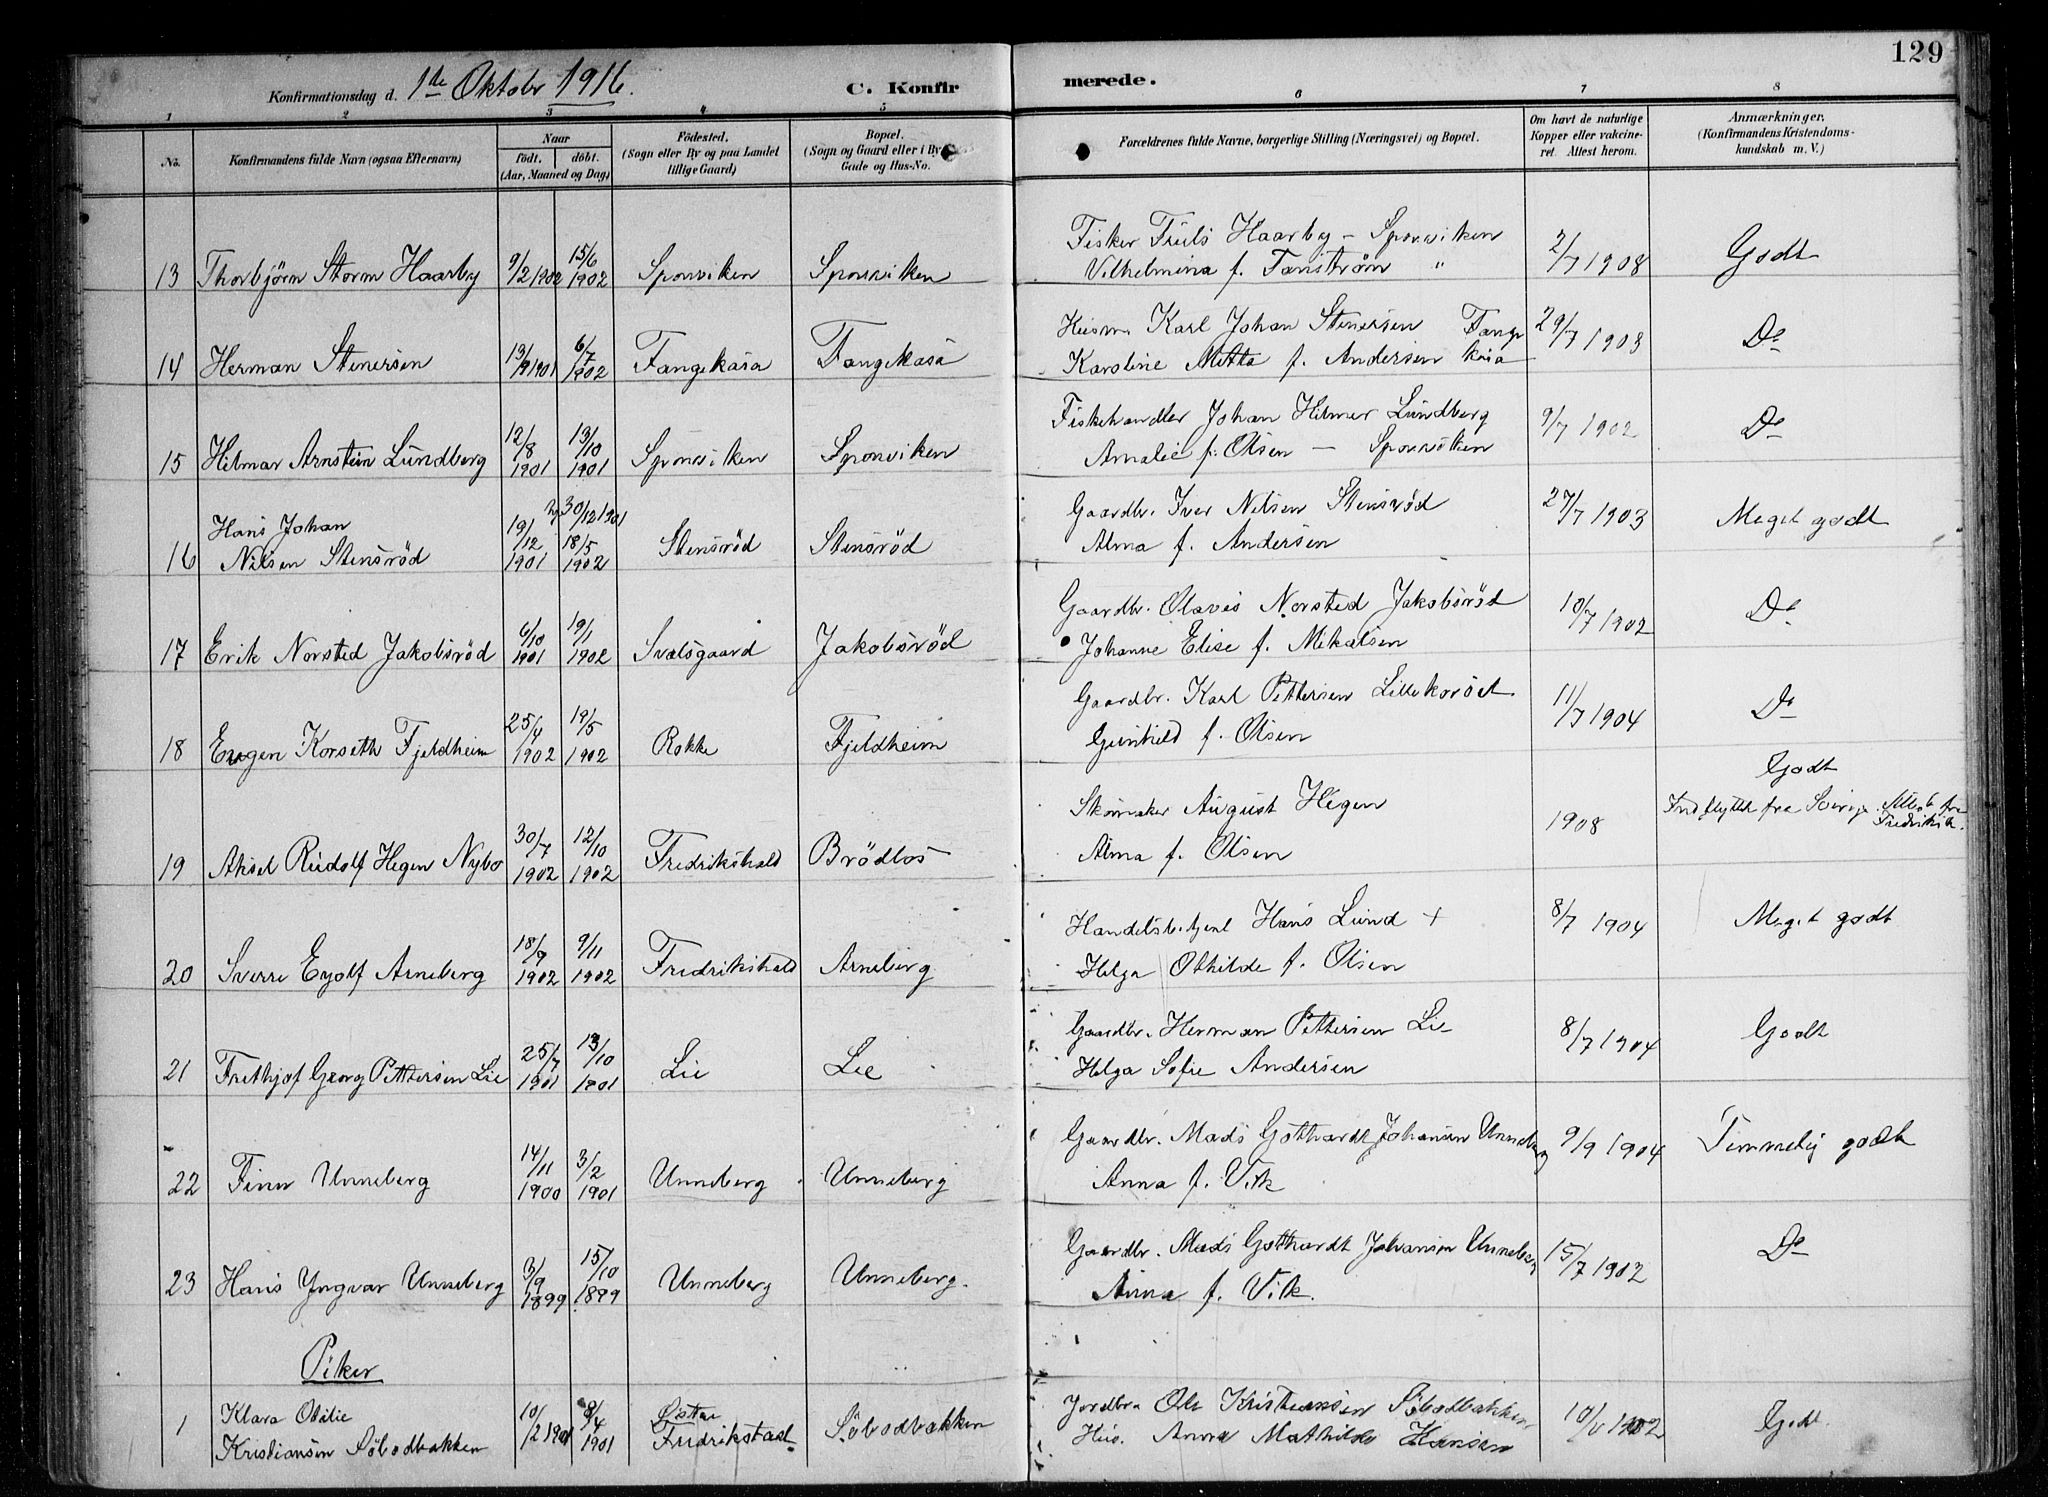 129
Konfirmationsdag d. 1ste Oktobr 1916.
C. Konfirmerede.
1 2 3 4 5 6 7 8
No.
Konfirmandens fulde Navn (ogsaa Efternavn)
Naar
födt. döbt.
(Aar, Maaned og Dag)
Födested.
(Sogn eller By og paa Landet
tillige Gaard)
Bopæl.
(Sogn og Gaard eller i By
Gade og Hus-No.
Forældrenes fulde Navne, borgerlige Stilling (Næringsvei) og Bopæl.
Om havt de naturlige
Kopper eller vakcine-
ret. Attest herom.
Anmærkninger.
(Konfirmandens Kristendoms-
kundskab m. V.)
13 Thorbjörn Storm Haarby 9/2 1902 15/6 1902 Sponviken Sponviken
Fisker Truls Haarby - Sponviken
Vilhelmina f. Fanström "
2/7 1908 Godt
14 Herman Stenersen 13/9 1901 6/7 1902 Fangekasa Fangekasa
Husm. Karl Johan Stenersen Fange
Karoline Mette f. Andersen kasa
29/7 1903 Do
15 Hilmar Arnstein Lundberg 12/8 1901 13/10 1901 Sponviken Sponviken
Fiskehandler Johan Hilmer Lundberg
Amalie f. Olsen - Sponviken
9/7 1902 Do
16 Hans Johan
Nilsen Stensröd 19/12 1901 30/12 1901 18/5 1902 Stensröd Stensröd
Gaardbr. Iver Nilsen Stensröd
Alma f. Andersen
27/7 1903 Meget godt
17 Erik Norsted Jakobsröd 6/10 1901 19/1 1902 Svalsgaard Jakobsröd
Gaardbr. Olavis Norsted Jakobsröd
Johanne Elise f. Mikalsen
10/7 1902 Do
18 Eugen Korseth Fjeldheim 25/4 1902 19/5 1902 Rokke Fjeldheim
Gaardbr. Karl Pettersen Lillekoröd
Gunhild f. Olsen
11/7 1904 Do
19 Aksel Rudolf Hegen Nybo 30/7 1902 12/10 1902 Fredrikshald Brödlös
Skomaker August Hegen
Alma f. Olsen
1908 Godt
Indflyttet fra Sverige. Attest fra
Fredriksh.
20 Sverre Eyolf Arneberg 18/9 1902 9/11 1902 Fredrikshald Arneberg
Handelsbetjent Hans Lund +
Helga Othilde f. Olsen
8/7 1904 Meget godt
21 Frithjof Georg Pettersen Lie 25/7 1901 13/10 1901 Lie Lie
Gaardbr. Herman Pettersen Lie
Helga Sofie Andersen
8/7 1904 Godt
22 Finn Unneberg 14/11 1900 3/2 1901 Unneberg Unneberg
Gaardbr. Mads Gotthardt Johansen Unneberg
Anna f. Vik
9/9 1904 Temmelig godt
23 Hans Yngvar Unneberg 3/9 1899 15/10 1899 Unneberg Unneberg.
Gaardbr. Mads Gotthardt Johansen Unneberg
Anna f. Vik.
15/7 1902 Do
Piker
1 Klara Otilie
Kristiansen Söbodbakken 10/2 1901 8/4 1901 Østre
Fredrikstad Söbodbakken
Jordbr. Ole Kristiansen Söbodbakken
Hus. Anna Mathilde Hansen
1902 Godt.